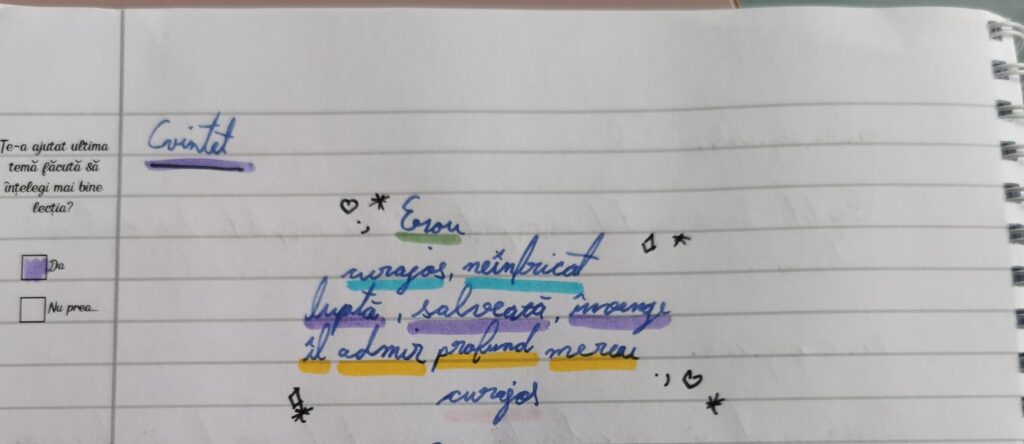 Te-a ajutat ultima
temă făcută să
înțelegi mai bine
lecția?
Da
Nu prea...
Cvintet
Erou
curajos, neînfricat
luptă, salvează, învinge
îl admir profund mereu
curajos